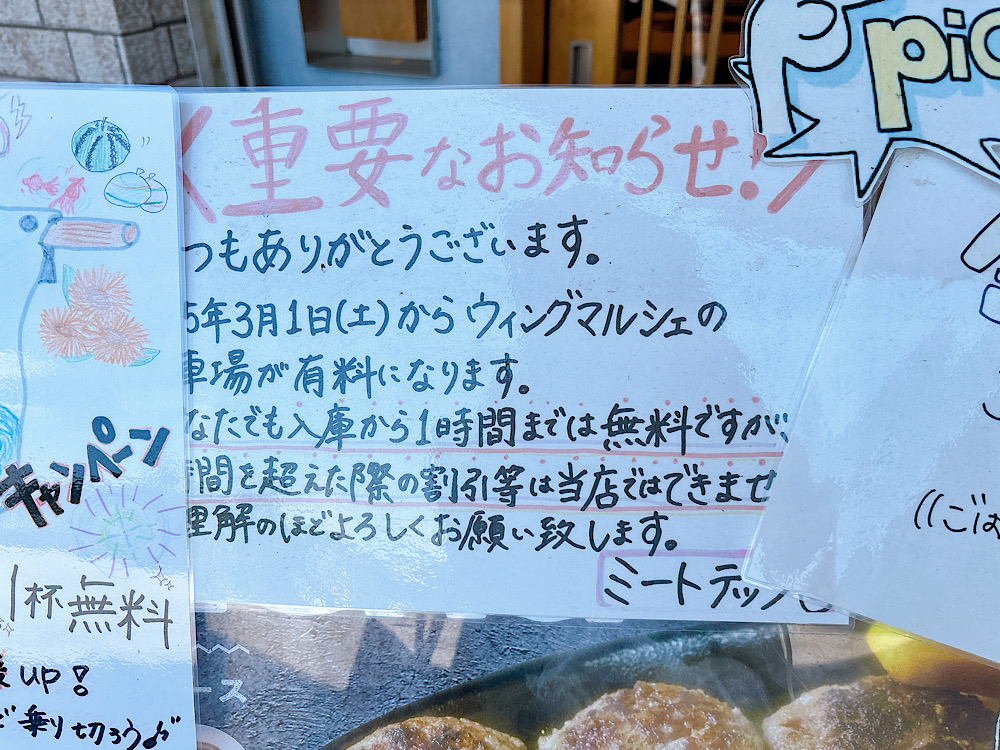 重要なお知らせ!
つもありがとうございます。
5年3月1日(土)からウィングマルシェの
車場が有料になります。
なたでも入庫から1時間までは無料ですが、
時間を超えた際の割引等は当店ではできませ
理解のほどよろしくお願い致します。
ミートテック
キャンペーン
1杯無料
UP!
で乗り切ろう♪
ース
pic
((ごは